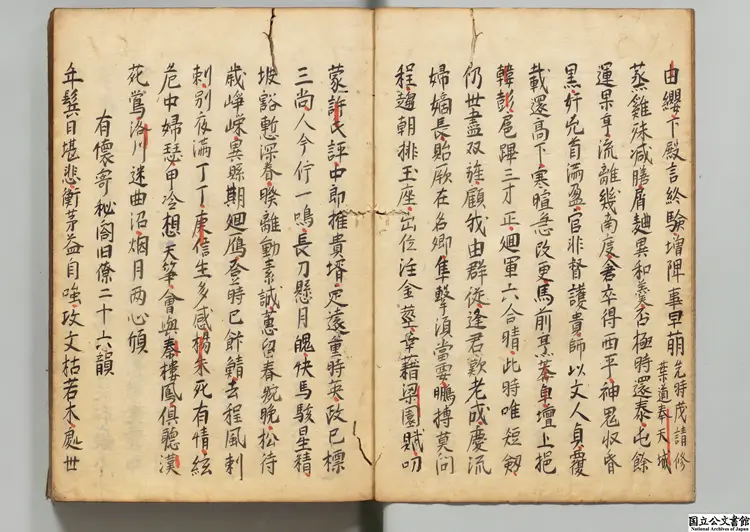 由纓下殿言終験增陴事早萌 先時茂請修
葉道奉天城
蒸雞殊減膳屑麹異和羹否極時還泰屯餘
運果亨流離幾南度倉卒得西平神鬼収昏
黒奸兇首滿盈官非督護貴師以文人貞覆
載還髙下寒暄急改更馬前烹莽卓壇上挹
韓彭扈蹕三才正廻軍六合晴此時唯短劔
仍世盡双旌顧我由群從逢君歎老成慶流
婦嫡長貽厥在名卿隼擊須當要鵬搏莫問
程趨朝排玉座出位泣金莖幸藉梁園賦叨
蒙許氏評中郎推貴壻定遠重時英政已標
三尚人今佇一鳴長刀懸月魄快馬駭星精
披豁慙深眷睽離動素誠蕙留春晼晚松待
歳崢嶸異縣期廻鴈登時已飰鯖去程風刺
刺別夜滿丁丁庾信生多感楊朱死有情絃
危中婦瑟甲冷想夫箏會與秦樓鳳俱聽漢
苑鶯洛川迷曲沼烟月两心傾
有懷寄秘閣旧僚二十六韻
年鬂日堪悲衡茅益自嗤攻文枯若木處世
国立公文書館
National Archives of Japan